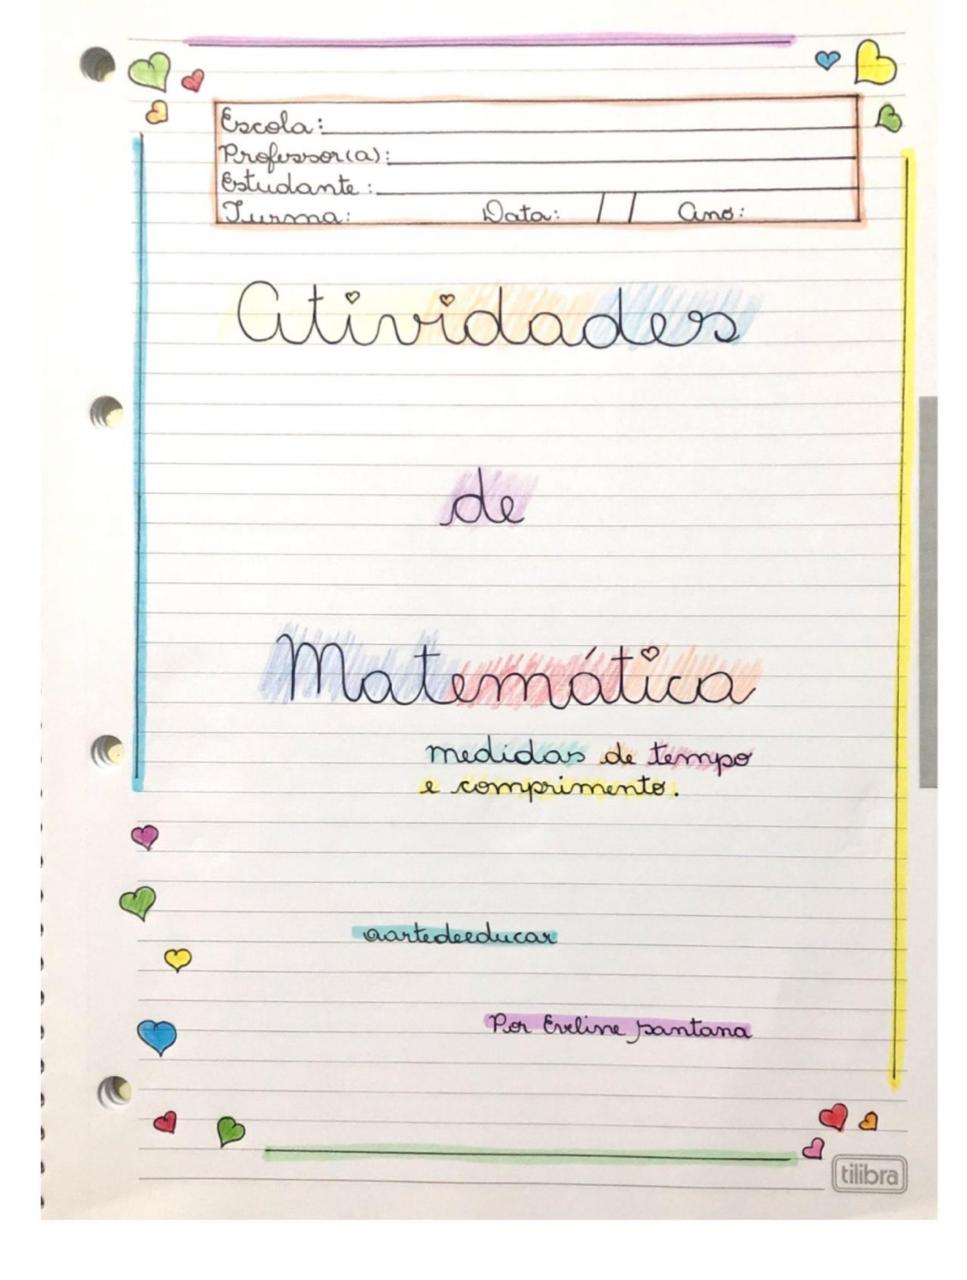 Escola:
Professor(a):
Estudante:
Turma: Data: / / Ano:
Atividades
de
Matemática
medidas de tempo
e comprimento.
aartedeeducar
Por Eveline Santana
tilibra